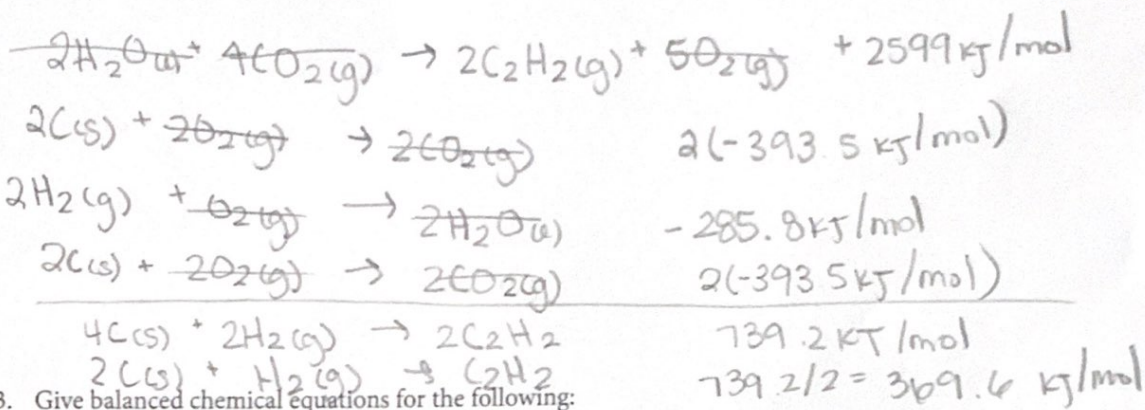 2H₂O(l) + 4CO₂(g) → 2C₂H₂(g) + 5O₂(g) + 2599 kJ/mol
2C(s) + 2O₂(g) → 2CO₂(g) 2(-393.5 kJ/mol)
2H₂(g) + O₂(g) → 2H₂O(l) -285.8 kJ/mol
2C(s) + 2O₂(g) → 2CO₂(g) 2(-393.5 kJ/mol)
4C(s) + 2H₂(g) → 2C₂H₂ 739.2 KJ/mol
2C(s) + H₂(g) → C₂H₂ 739.2/2 = 369.6 kJ/mol
3. Give balanced chemical equations for the following: